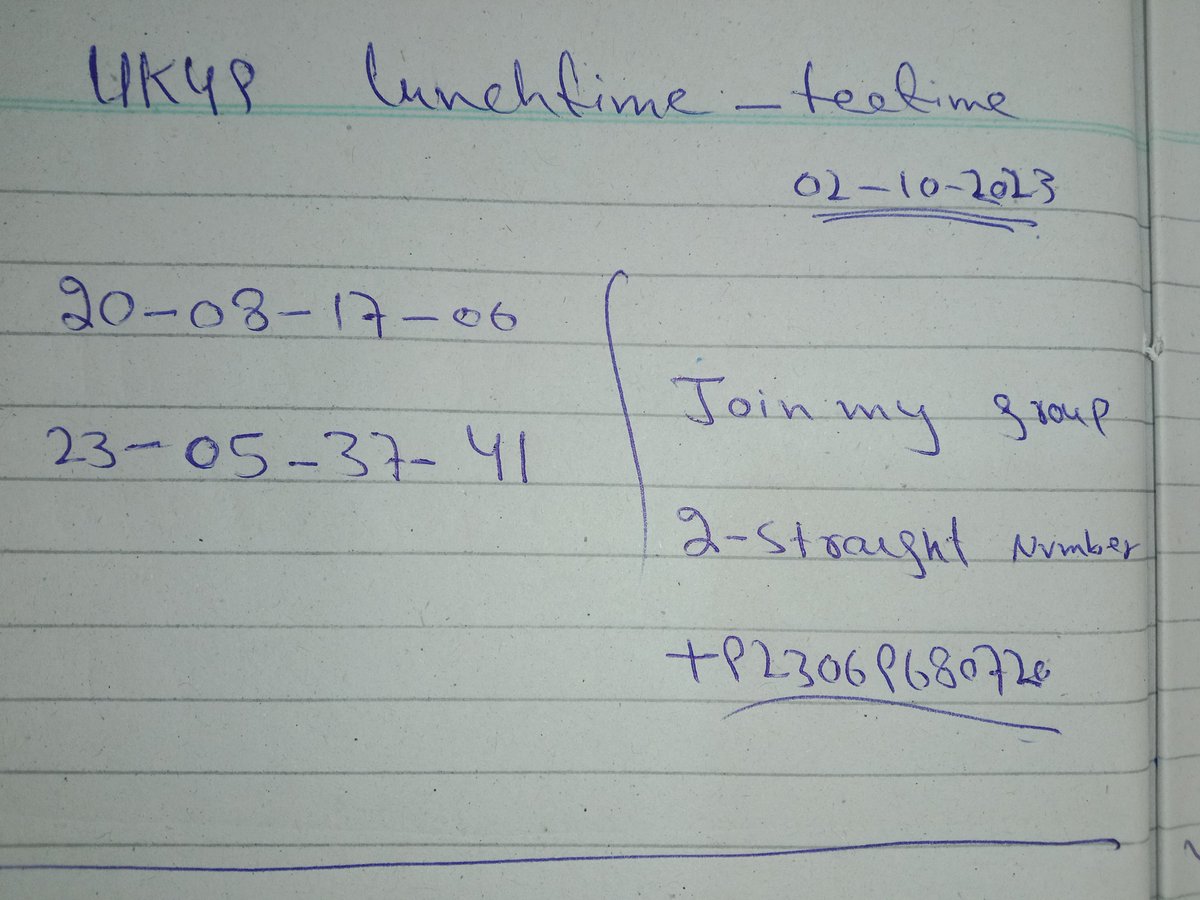 UK49 lunchtime - teatime
02-10-2023
20-08-17-06
23-05-37-41
Join my group
2-straight Number
+923069680720